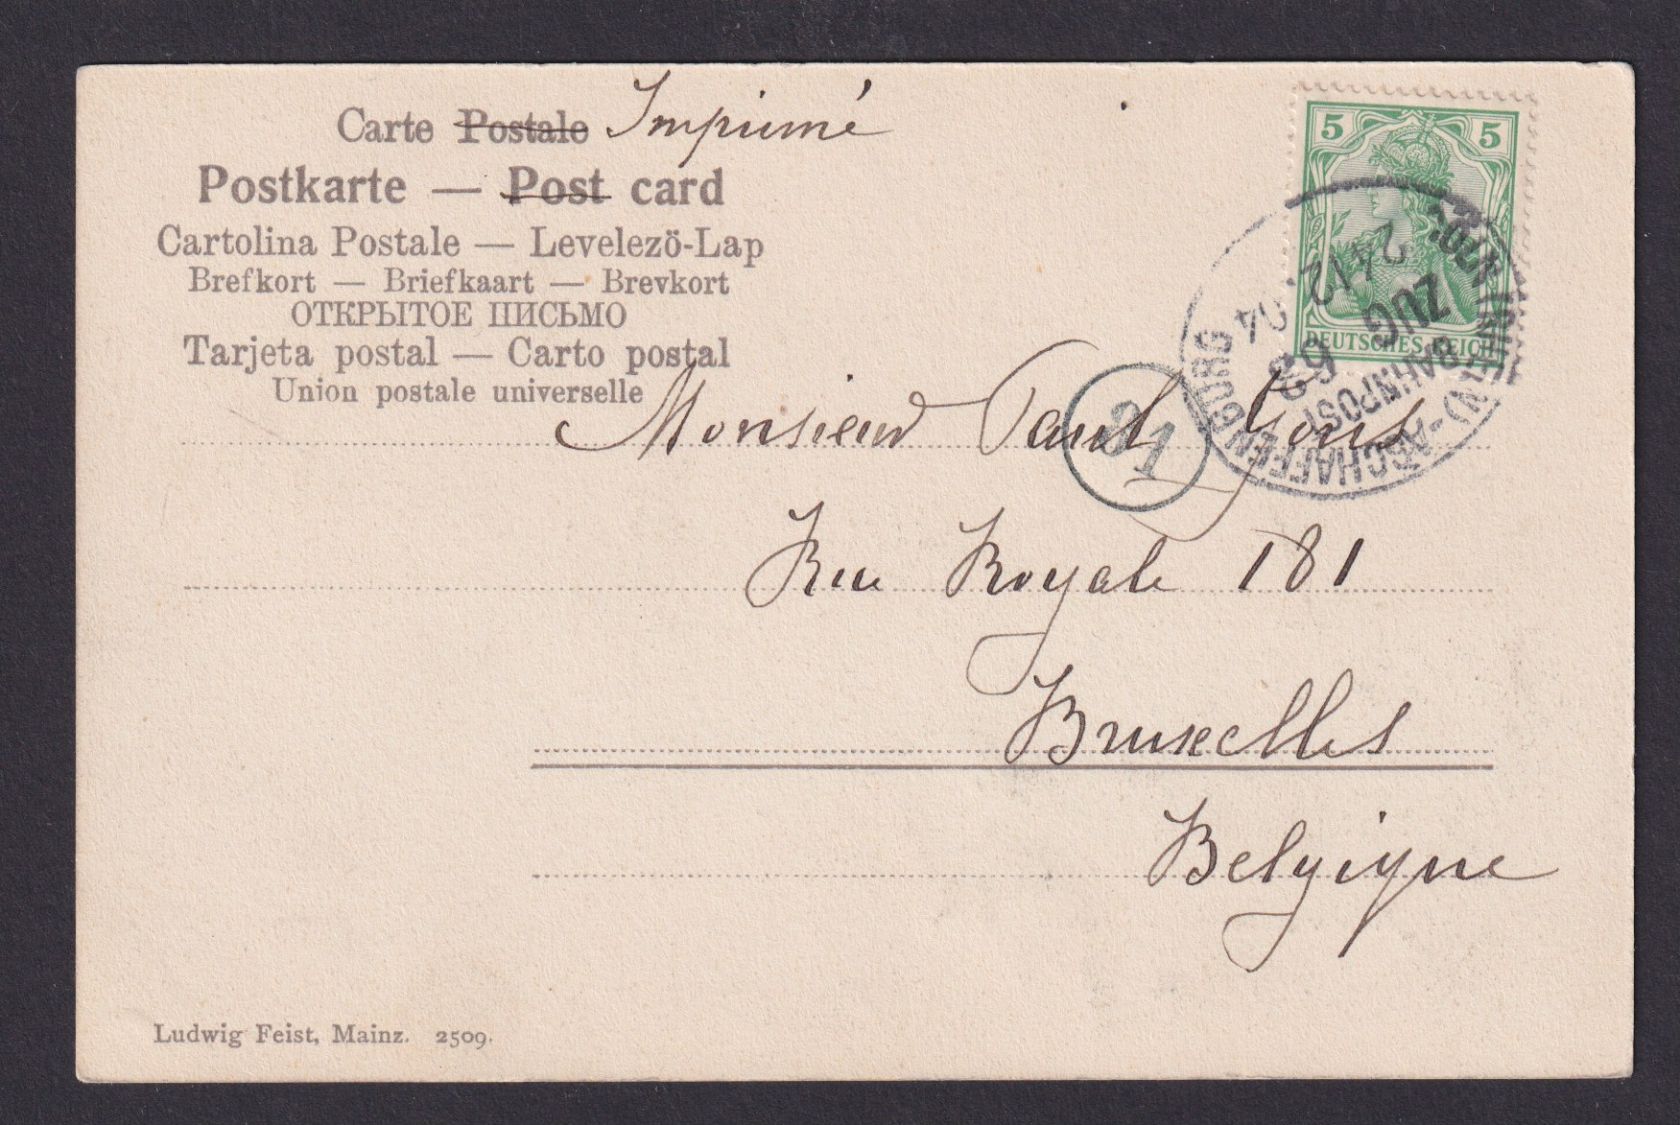 Carte Postale Imprimé
Postkarte — Post card
Cartolina Postale — Levelezö-Lap
Brefkort — Briefkaart — Brevkort
ОТКРЫТОЕ ПИСЬМО
Tarjeta postal — Carto postal
Union postale universelle
5 5
DEUTSCHES REICH
(RHEIN)-ASCHAFFENBURG
BAHNPOST
ZUG
63
24 12 04
31
Monsieur Paul Gous
Rue Royale 181
Bruxelles
Belgique
Ludwig Feist, Mainz. 2509.